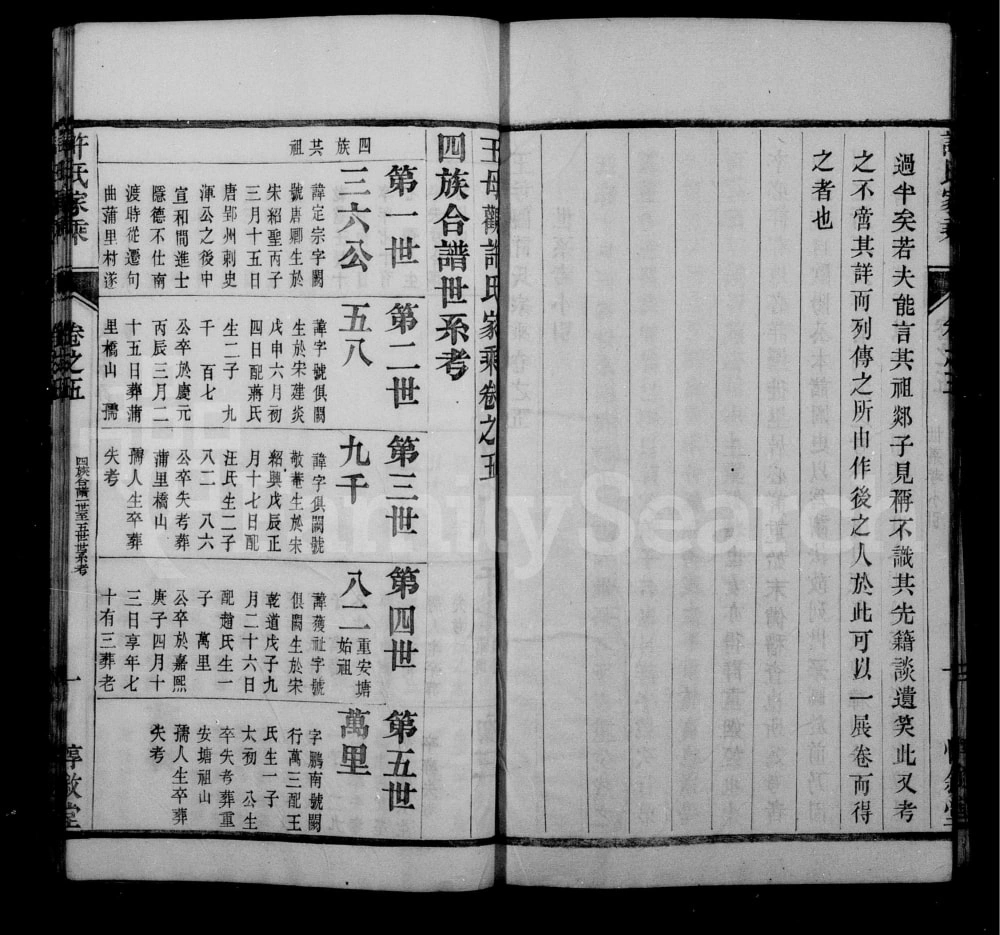 過半矣若夫能言其祖郯子見稱不識其先籍談遺笑此又考
之不啻其詳而列傳之所由作後之人於此可以一展卷而得
之者也
王母觀許氏家乘卷之五
四族合譜世系考
四族共祖
第一世
三六公
諱定宗字闕
號唐卿生於
宋紹聖丙子
三月十五日
唐郢州刺史
渾公之後中
宣和間進士
隱德不仕南
渡時從遷句
曲蒲里村遂
第二世
五八
諱字號俱闕
生於宋建炎
戊申六月初
四日配蔣氏
生二子 九
千 百七
公卒於慶元
丙辰三月二
十五日葬蒲
里橋山 孺
第三世
九千
諱字俱闕號
敬菴生於宋
紹興戊辰正
月十七日配
汪氏生二子
八二 八六
公卒失考葬
蒲里橋山
孺人生卒葬
失考
第四世
八二
重安塘
始祖
諱蒦祉字號
俱闕生於宋
乾道戊子九
月二十六日
配趙氏生一
子 萬里
公卒於嘉熙
庚子四月十
三日享年七
十有三葬老
第五世
萬里
字鵬南號闕
行萬三配王
氏生一子
太初 公生
卒失考葬重
安塘祖山
孺人生卒葬
失考
許氏家乘
卷之五
四族合譜一世至五世世系考
一
惇敘堂